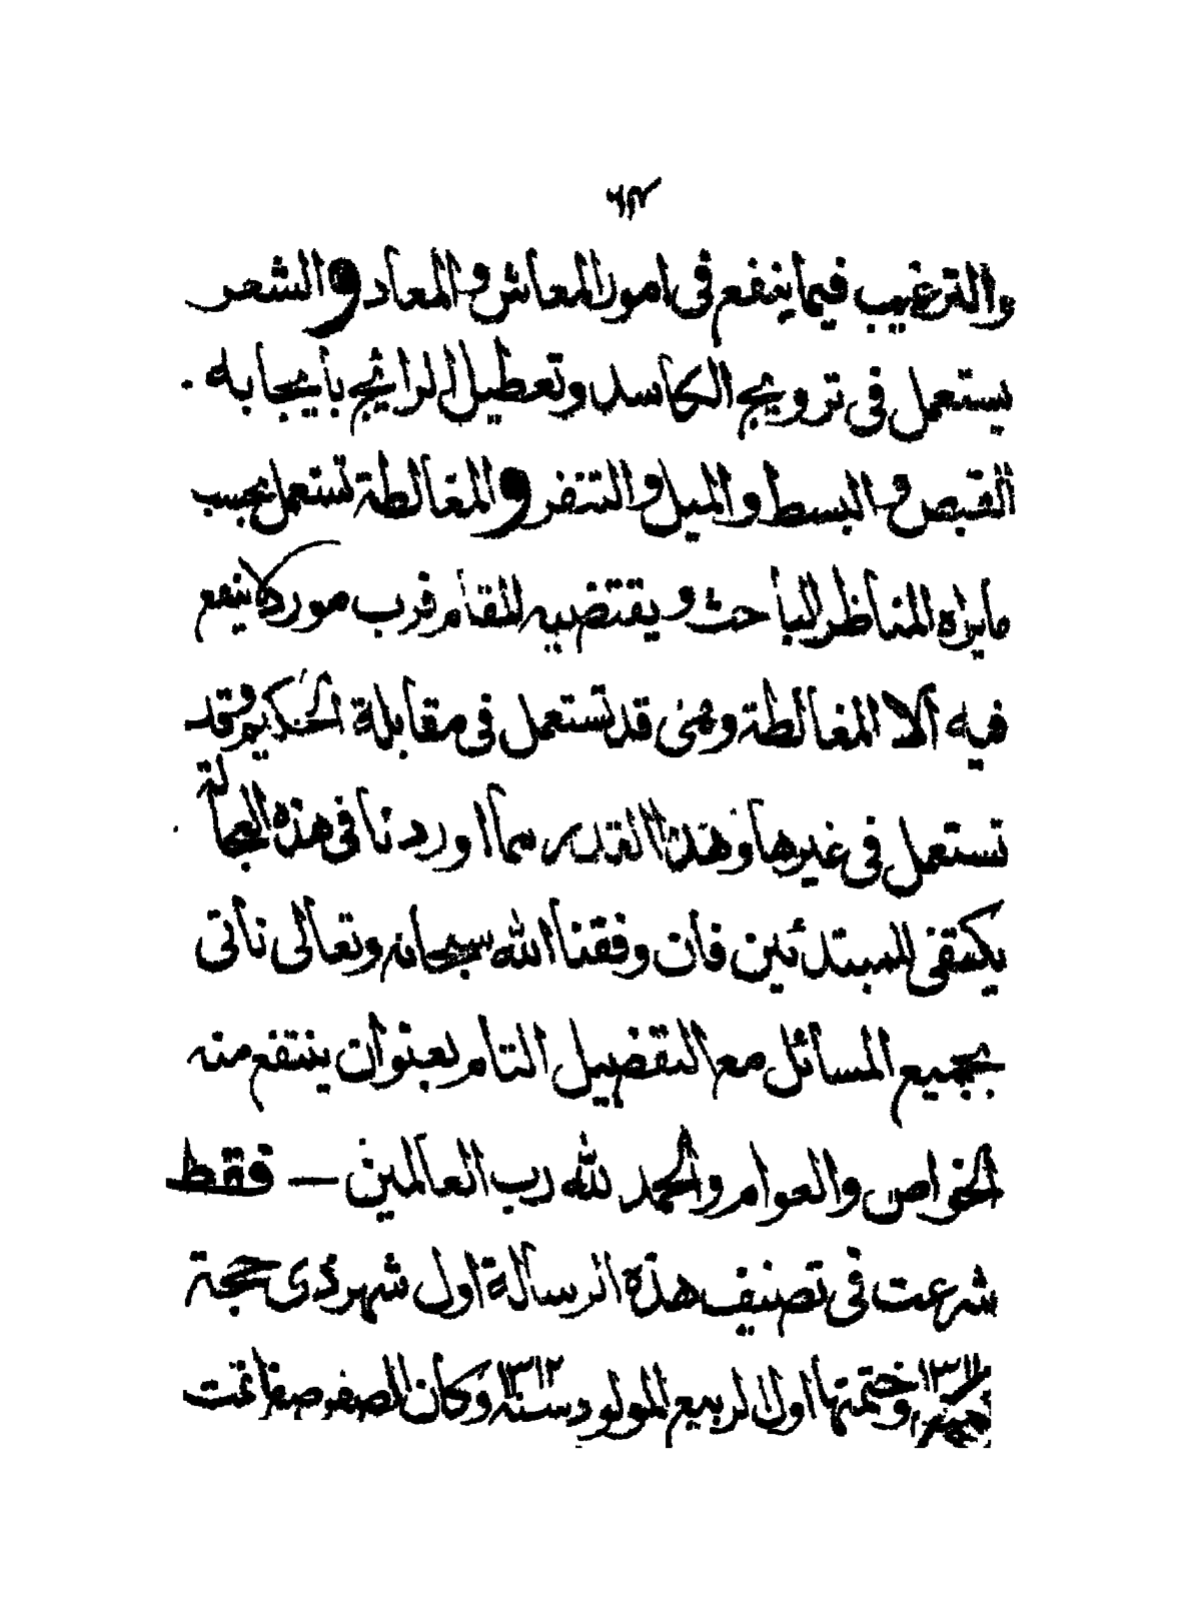 والترغيب فيما ينفع فى امور المعاش و المعاد و الشعر
يستعمل فى ترويج الكاسد وتعطيل الرايج بأيجابه
القبض و البسط والميل و التنفر و المغالطة تستعمل بحسب
مايراه المناظر الباحث و يقتضيه المقام فرب مورد كا ينفع
فيه الا المغالطة وهى قد تستعمل فى مقابلة الحكيم وقد
تستعمل فى غيرها وهذا القدر مما اوردنا فى هذه العجالة
يكتفى للمبتدئين فان وفقنا الله سبحانه وتعالى نأتى
بجميع المسائل مع التفضيل التام بعنوان ينتفع منه
الخواص والعوام والحمد لله رب العالمين — فقط
شرعت فى تصنيف هذه الرسالة اول شهر ذى حجة
١٣١١ وختمتها اول الربيع المولود سنة ١٣١٢ وكان الصفر صفا تمت